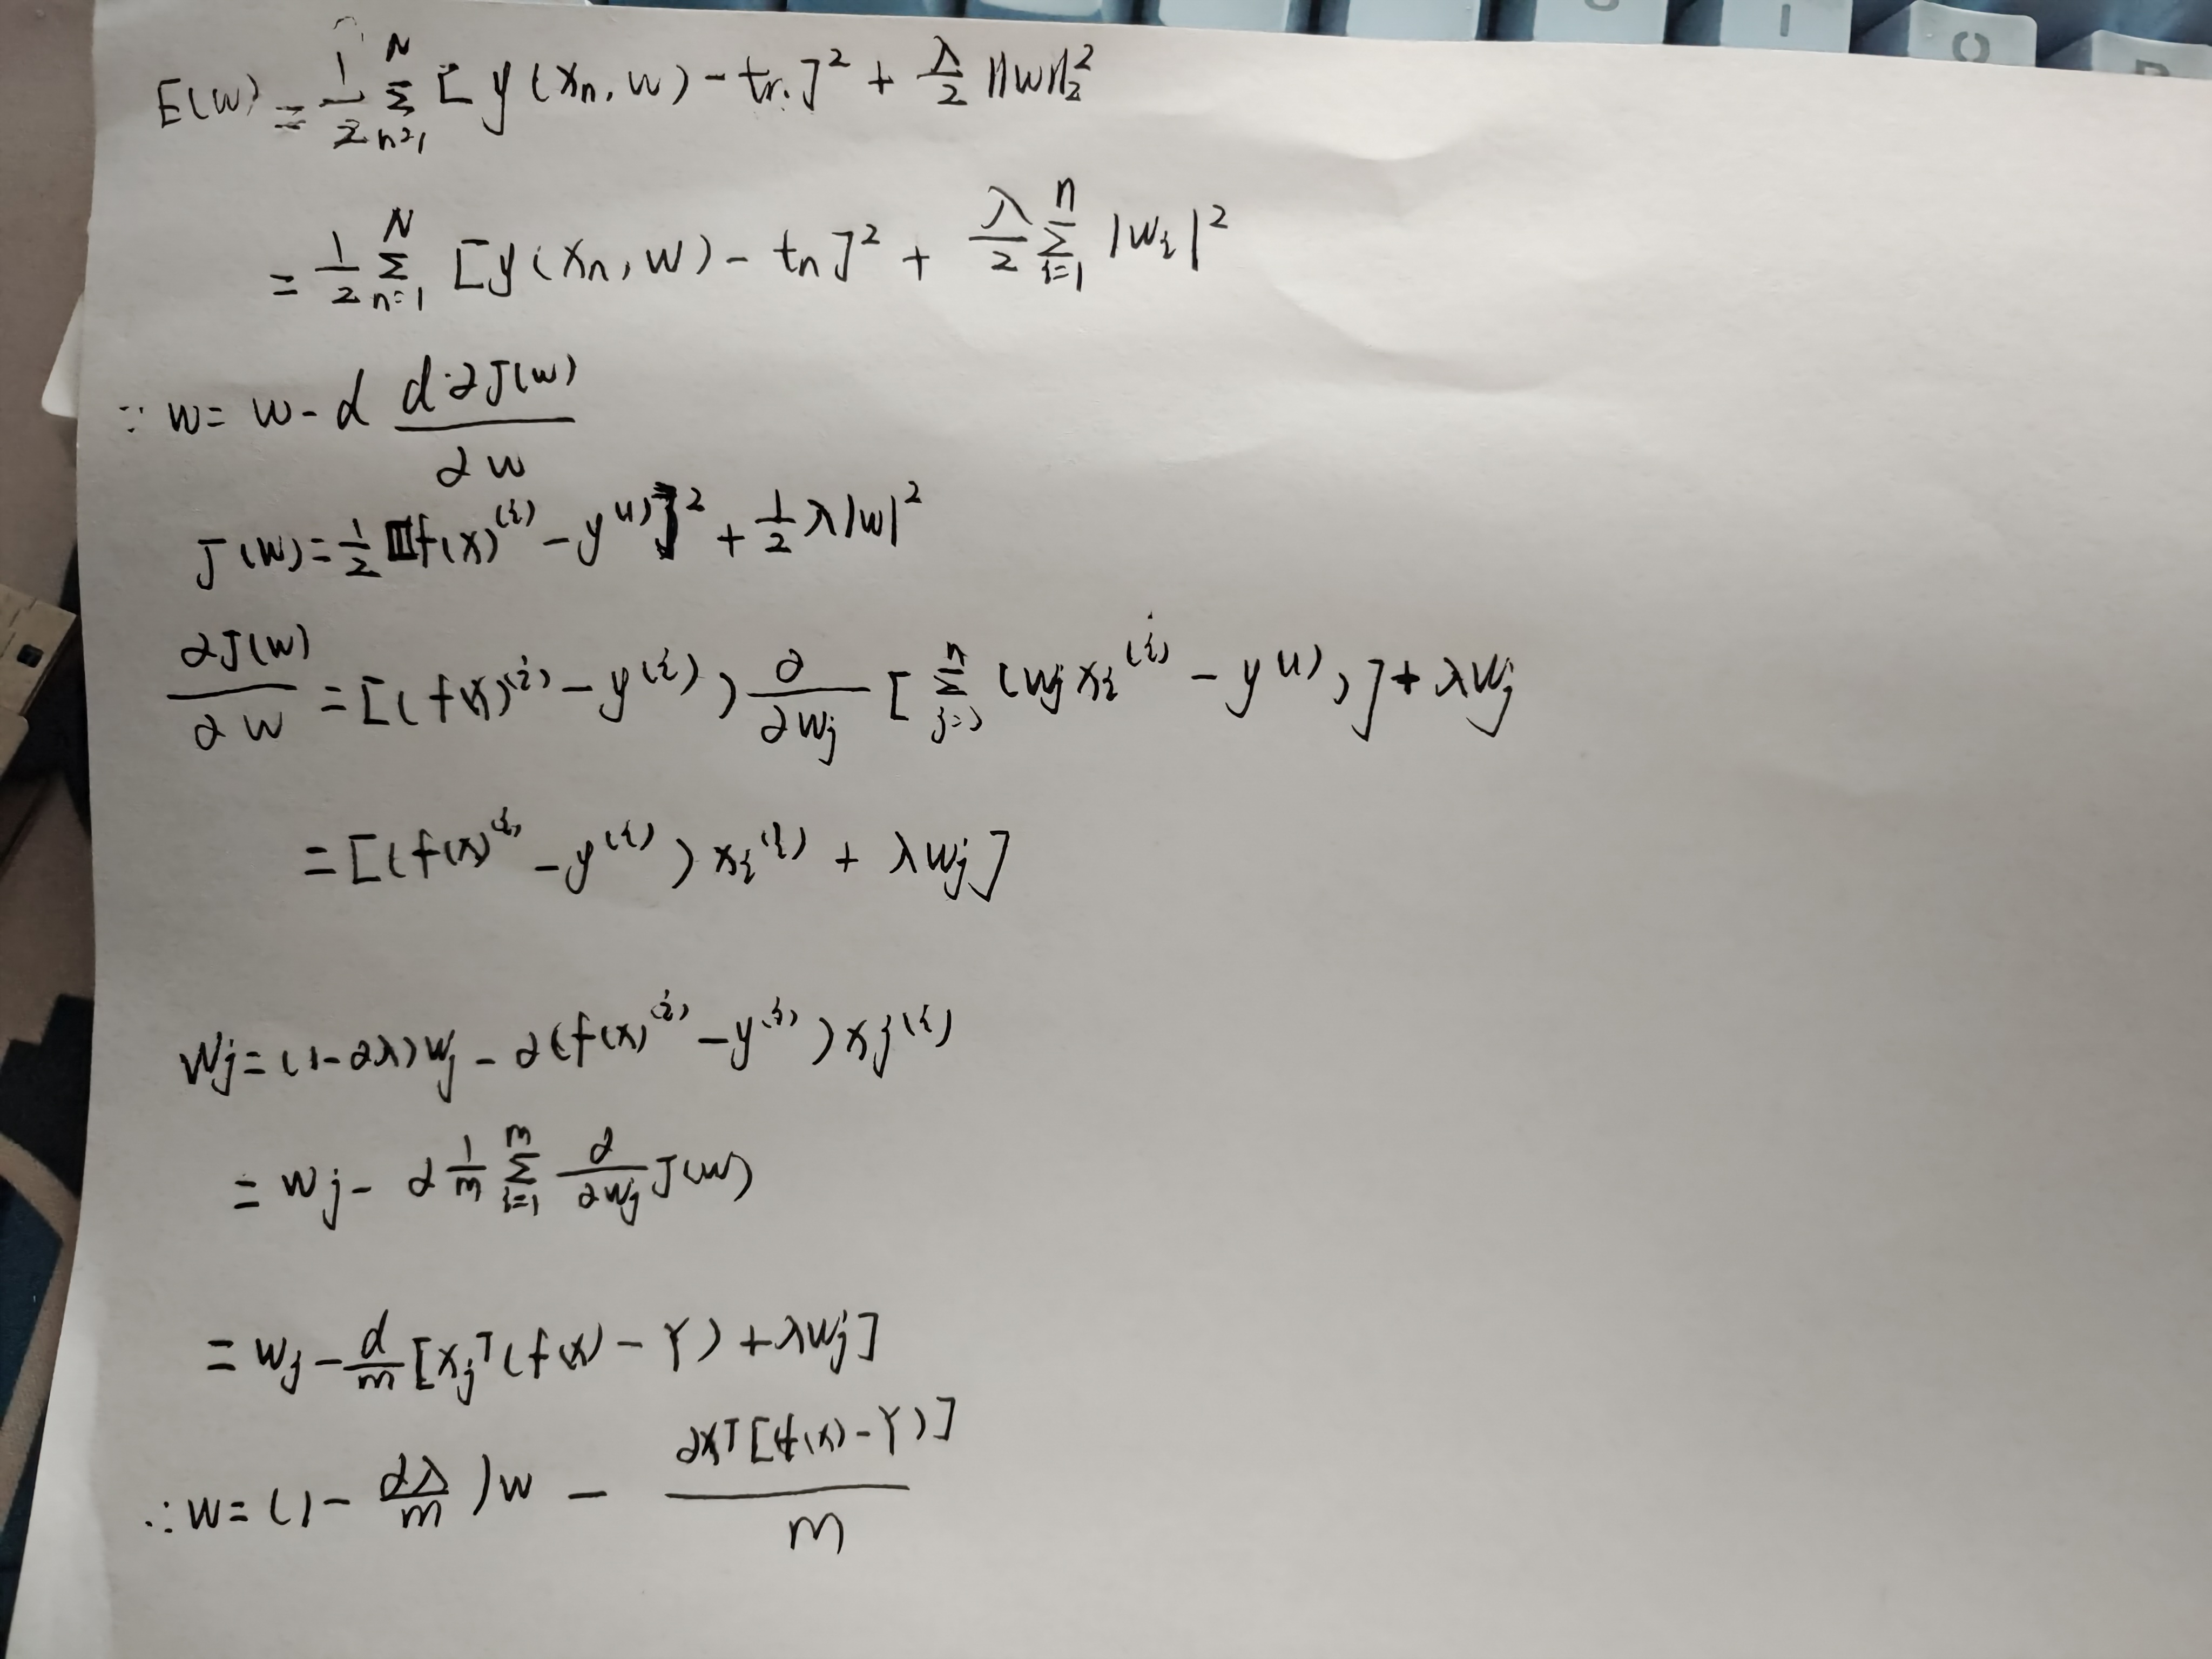 E(w) = 1/2 Σ_{n=1}^{N} [y(xn, w) - tn]² + λ/2 ||w||₂²
= 1/2 Σ_{n=1}^{N} [y(xn, w) - tn]² + λ/2 Σ_{i=1}^{n} |wi|²
∵ w = w - α (α·∂J(w))/(∂w)
J(w) = 1/2 [f(x)^(i) - y^(i)]² + 1/2 λ|w|²
∂J(w)/∂w = [(f(x)^(i) - y^(i)) ∂/∂wj [Σ_{j=1}^{n} (wj xi^(i) - y^(i))] + λwj
= [(f(x)^(i) - y^(i)) xi^(i) + λwj]
wj = (1-αλ)wj - α(f(x)^(i) - y^(i)) xj^(i)
= wj - α 1/m Σ_{i=1}^{m} ∂/∂wj J(w)
= wj - α/m [xj^T (f(x) - Y) + λwj]
∴ w = (1 - αλ/m) w - αX^T[f(x) - Y)]/m
O
I